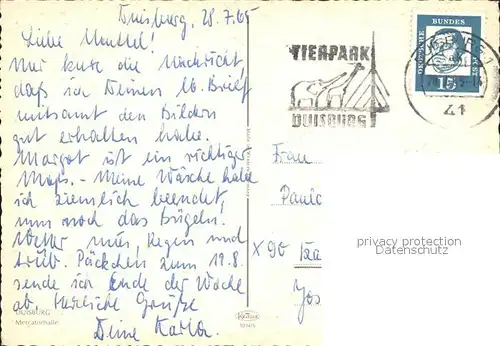 Duisburg, 28.7.65
Liebe Mutti!
Nur kurz die Nachricht,
daß ich Deinen lb. Brief
mitsamt den Bildern
gut erhalten habe.
Margot ist ein richtiger
Mops. - Meine Wäsche habe
ich ziemlich beendet,
nun noch das Bügeln.
Wetter mies, Regen und
trüb. Päckchen zum 19.8.
sende ich Ende der Woche
ab. Herzliche Grüße
Deine
DUISBURG
Mercatorhalle
TIERPARK
DUISBURG
DEUTSCHE BUNDES
15
41
Frau
X 90
privacy protection
www.ansichtskarten-center.de